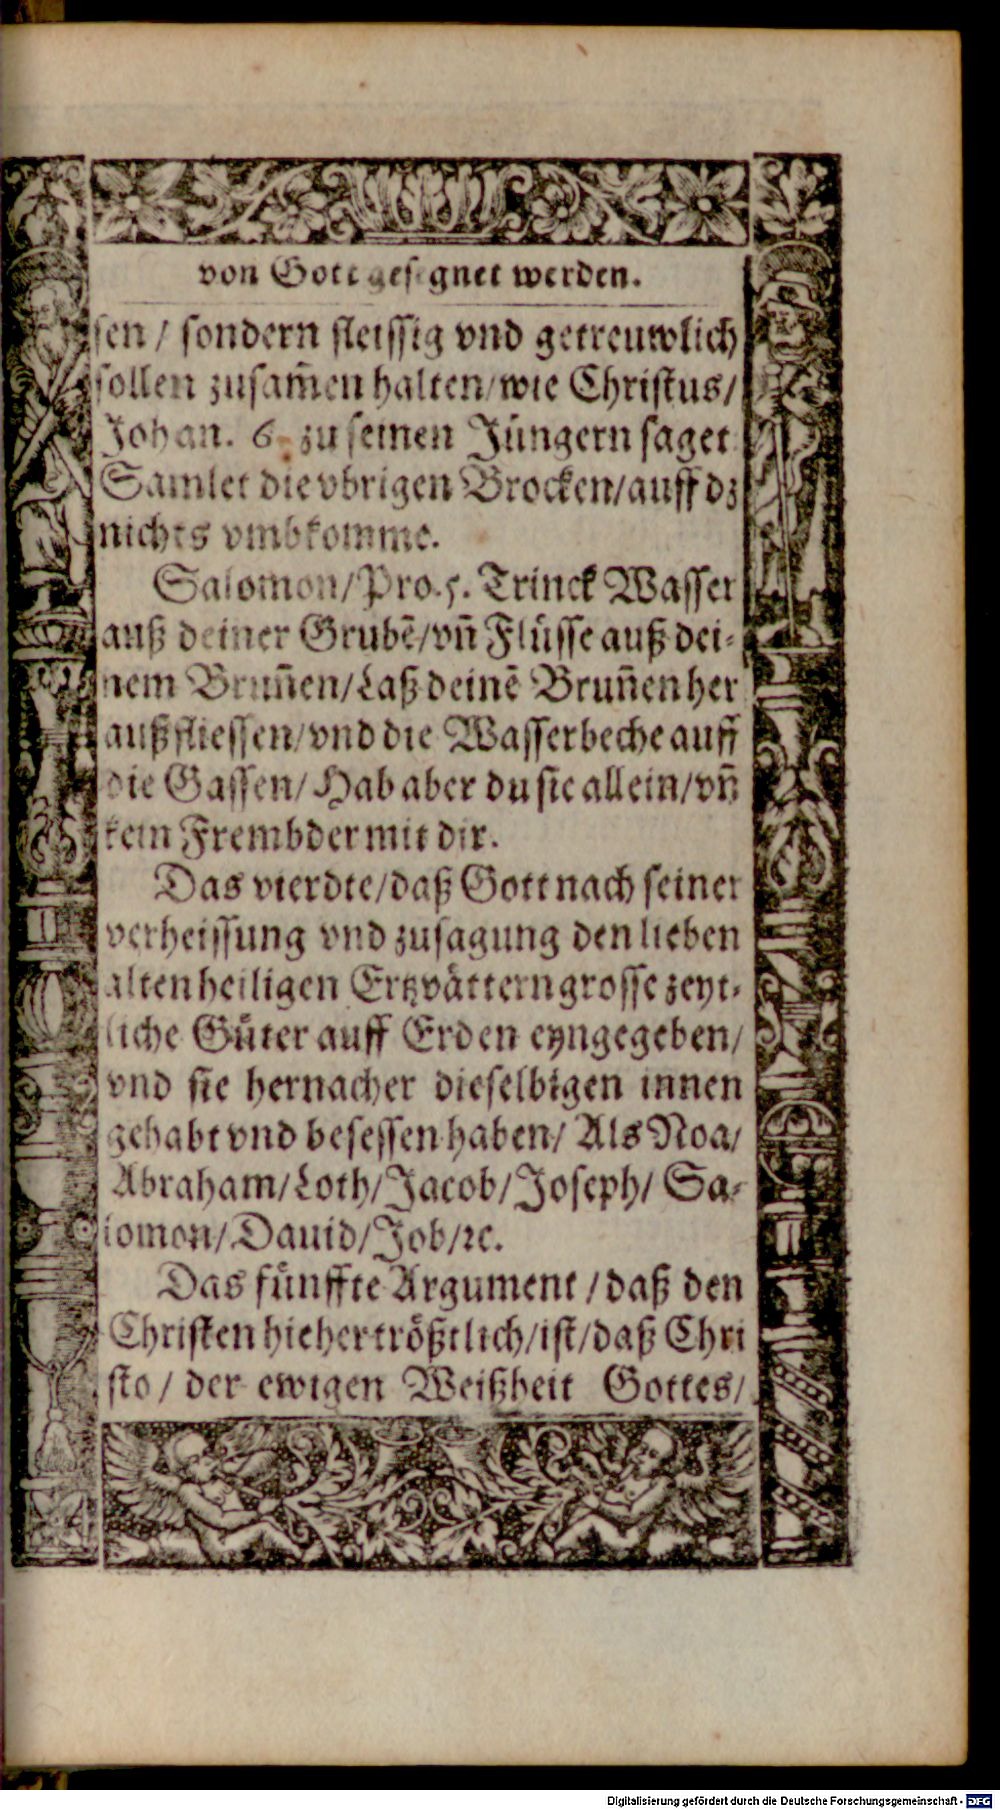 von Gott gesegnet werden.
sen / sondern fleissig vnd getreuwlich
sollen zusam̃en halten/wie Christus/
Johan. 6. zu seinen Jüngern saget
Samlet die vbrigen Brocken/auff dz
nichts vmbkomme.
Salomon/Pro.5. Trinck Wasser
auß deiner Grubẽ/vñ Flüsse auß dei-
nem Brun̄en/Laß deinẽ Brun̄en her
auß fliessen/vnd die Wasserbeche auff
die Gassen/Hab aber du sie allein/vñ
kein Frembder mit dir.
Das vierdte/daß Gott nach seiner
verheissung vnd zusagung den lieben
alten heiligen Ertzvättern grosse zeyt-
liche Güter auff Erden eyngegeben/
vnd sie hernacher dieselbigen innen
gehabt vnd besessen haben/ Als Noa/
Abraham/Loth/Jacob/Joseph/ Sa-
lomon/Dauid/Job/ꝛc.
Das fünffte Argument / daß den
Christen hieher trößtlich/ist/daß Chri
sto / der ewigen Weißheit Gottes/
Digitalisierung gefördert durch die Deutsche Forschungsgemeinschaft - DFG